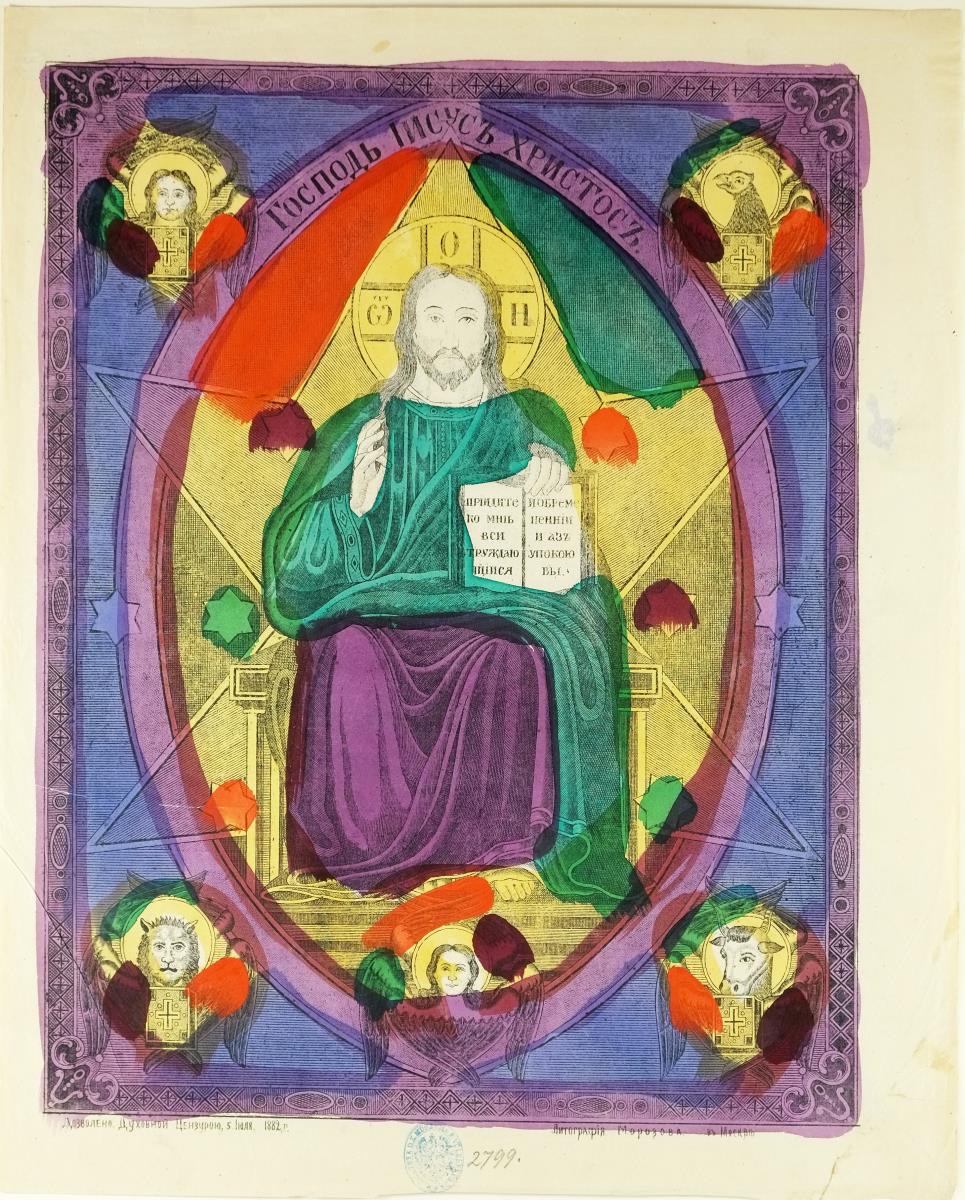 Господь Іисусъ Христосъ.
О
Ѿ Н
ПРІИДИТЕ
КО МНѢ
ВСИ
ТРУЖДАЮ
ЩІИСЯ
И ОБРЕМ
НЕННІИ
И АЗЪ
УПОКОЮ
ВЫ.
Дозволено Духовной Цензурою, 5. Іюля. 1882 г.
Литографія Морозова въ Москвѣ
2799.